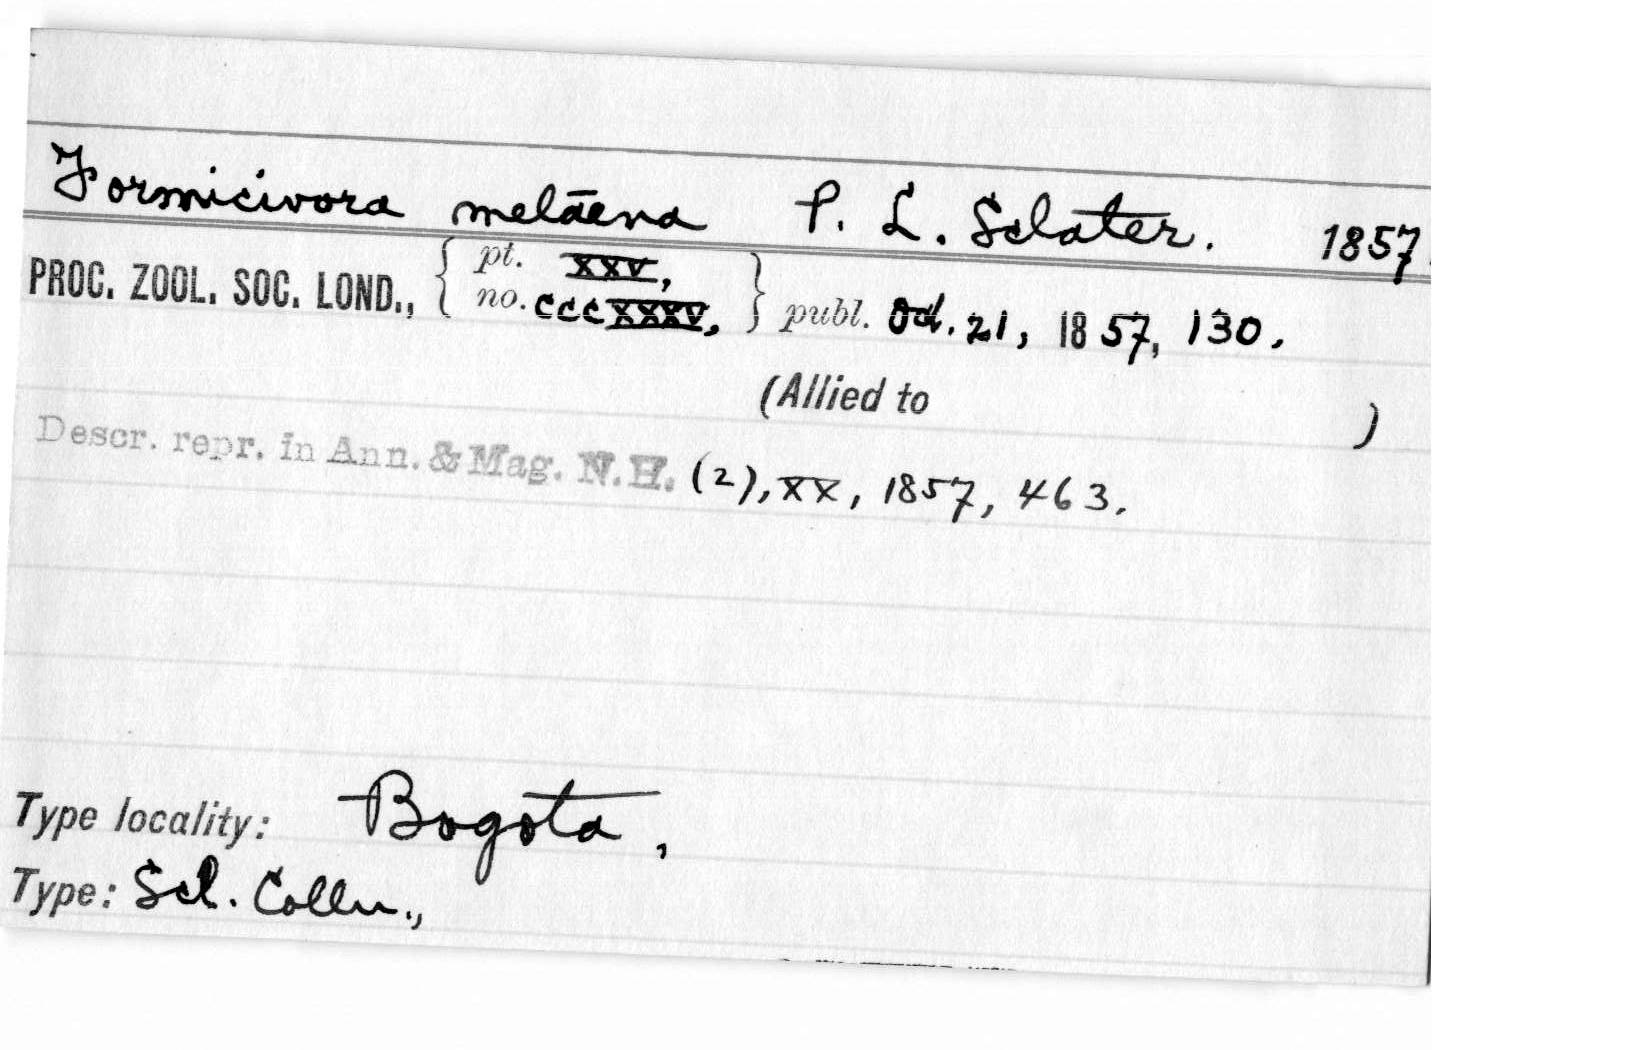 Formicivora melāena P. L. Sclater. 1857.
PROC. ZOOL. SOC. LOND., { pt. XXV, no. CCCXXXV, } publ. Oct. 21, 1857, 130.
(Allied to )
Descr. repr. in Ann. & Mag. N.H. (2), XX, 1857, 463.
Type locality: Bogota,
Type: Scl. Colln.,